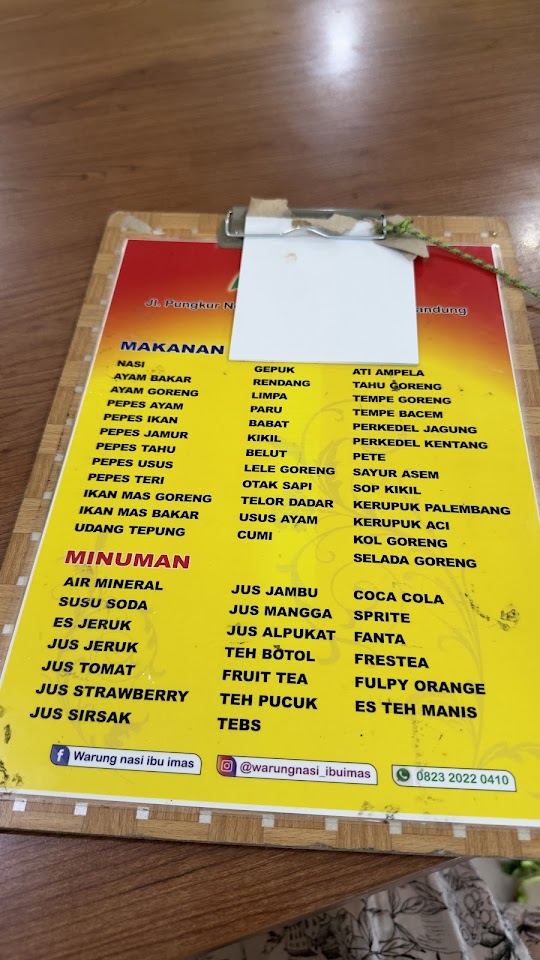 Jl. Pungkur
andung
MAKANAN
NASI
AYAM BAKAR
AYAM GORENG
PEPES AYAM
PEPES IKAN
PEPES JAMUR
PEPES TAHU
PEPES USUS
PEPES TERI
IKAN MAS GORENG
IKAN MAS BAKAR
UDANG TEPUNG
GEPUK
RENDANG
LIMPA
PARU
BABAT
KIKIL
BELUT
LELE GORENG
OTAK SAPI
TELOR DADAR
USUS AYAM
CUMI
ATI AMPELA
TAHU GORENG
TEMPE GORENG
TEMPE BACEM
PERKEDEL JAGUNG
PERKEDEL KENTANG
PETE
SAYUR ASEM
SOP KIKIL
KERUPUK PALEMBANG
KERUPUK ACI
KOL GORENG
SELADA GORENG
MINUMAN
AIR MINERAL
SUSU SODA
ES JERUK
JUS JERUK
JUS TOMAT
JUS STRAWBERRY
JUS SIRSAK
JUS JAMBU
JUS MANGGA
JUS ALPUKAT
TEH BOTOL
FRUIT TEA
TEH PUCUK
TEBS
COCA COLA
SPRITE
FANTA
FRESTEA
FULPY ORANGE
ES TEH MANIS
Warung nasi ibu imas
@warungnasi_ibuimas
0823 2022 0410